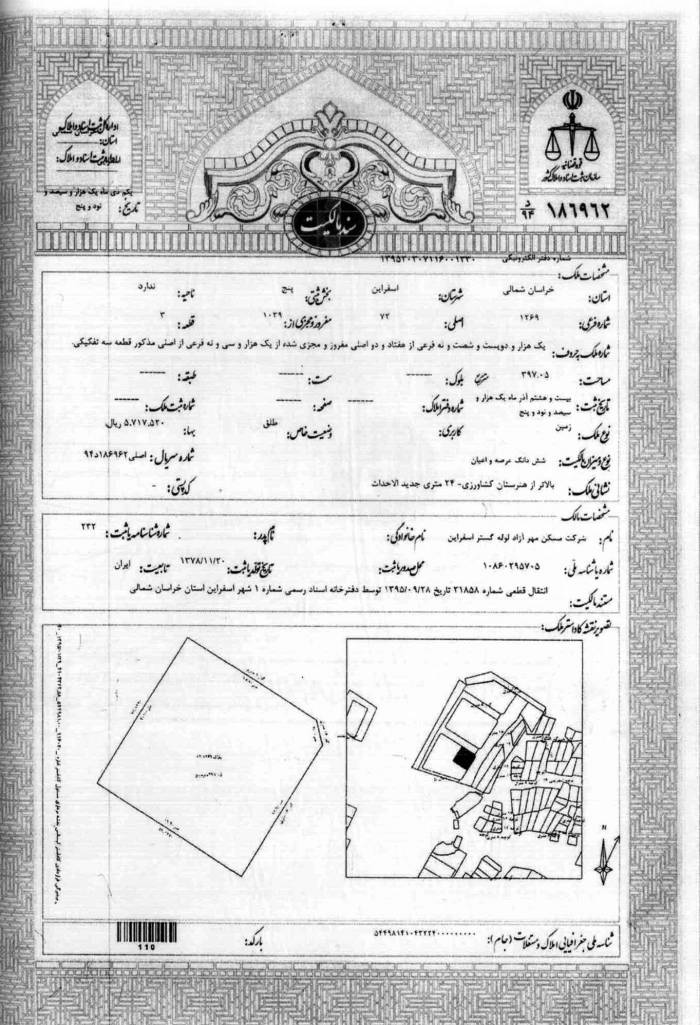 قوه قضائیه
سازمان ثبت اسناد و املاک کشور
اداره کل ثبت اسناد و املاک
استان:
اداره ثبت اسناد و املاک:
تاریخ: یکم دی ماه یک هزار و سیصد و نود و پنج
سند مالکیت
۱۸۶۹۶۲ د ۹۴
شماره دفتر الکترونیکی ۱۳۹۵۲۰۳۰۷۱۱۶۰۰۱۳۳۰
مشخصات ملک:
استان: خراسان شمالی شهرستان: اسفراین بخش ثبتی: پنج ناحیه: ندارد
شماره فرعی: ۱۲۶۹ اصلی: ۷۲ مفروز و مجزی از: ۱۰۳۹ قطعه: ۳
شماره ملک به حروف: یک هزار و دویست و شصت و نه فرعی از هفتاد و دو اصلی مفروز و مجزی شده از یک هزار و سی و نه فرعی از اصلی مذکور قطعه سه تفکیکی.
مساحت: ۳۹۷.۰۵ مترمربع بلوک: ------ سمت: ------ طبقه: ------
تاریخ ثبت: بیست و هشتم آذر ماه یک هزار و سیصد و نود و پنج شماره دفتر املاک: ------ صفحه: ------ شماره ثبت ملک: ------
نوع ملک: زمین کاربری: وضعیت خاص: طلق بها: ۵.۷۱۷.۵۲۰ ریال.
نوع و میزان مالکیت: شش دانگ عرصه و اعیان شماره سریال: اصلی۱۸۶۹۶۲د۹۴
نشانی ملک: بالاتر از هنرستان کشاورزی- ۲۴ متری جدید الاحداث کد پستی: -
مشخصات مالک:
نام: شرکت مسکن مهر آزاد لوله گستر اسفراین نام خانوادگی: نام پدر: شماره شناسنامه یا ثبت: ۲۳۲
شماره یا شناسه ملی: ۱۰۸۶۰۲۹۵۷۰۵ محل صدور یا ثبت: تاریخ تولد یا ثبت: ۱۳۷۸/۱۱/۲۰ تابعیت: ایران
مستند مالکیت: انتقال قطعی شماره ۲۱۸۵۸ تاریخ ۱۳۹۵/۰۹/۲۸ توسط دفترخانه اسناد رسمی شماره ۱ شهر اسفراین استان خراسان شمالی
تصویر نقشه کاداستر ملک:
N
شناسه ملی جغرافیایی املاک و مستغلات (جام): ۵۴۴۹۸۱۴۱۰۴۳۲۲۴۰۰۰۰۰۰۰۰۰
بارکد:
110